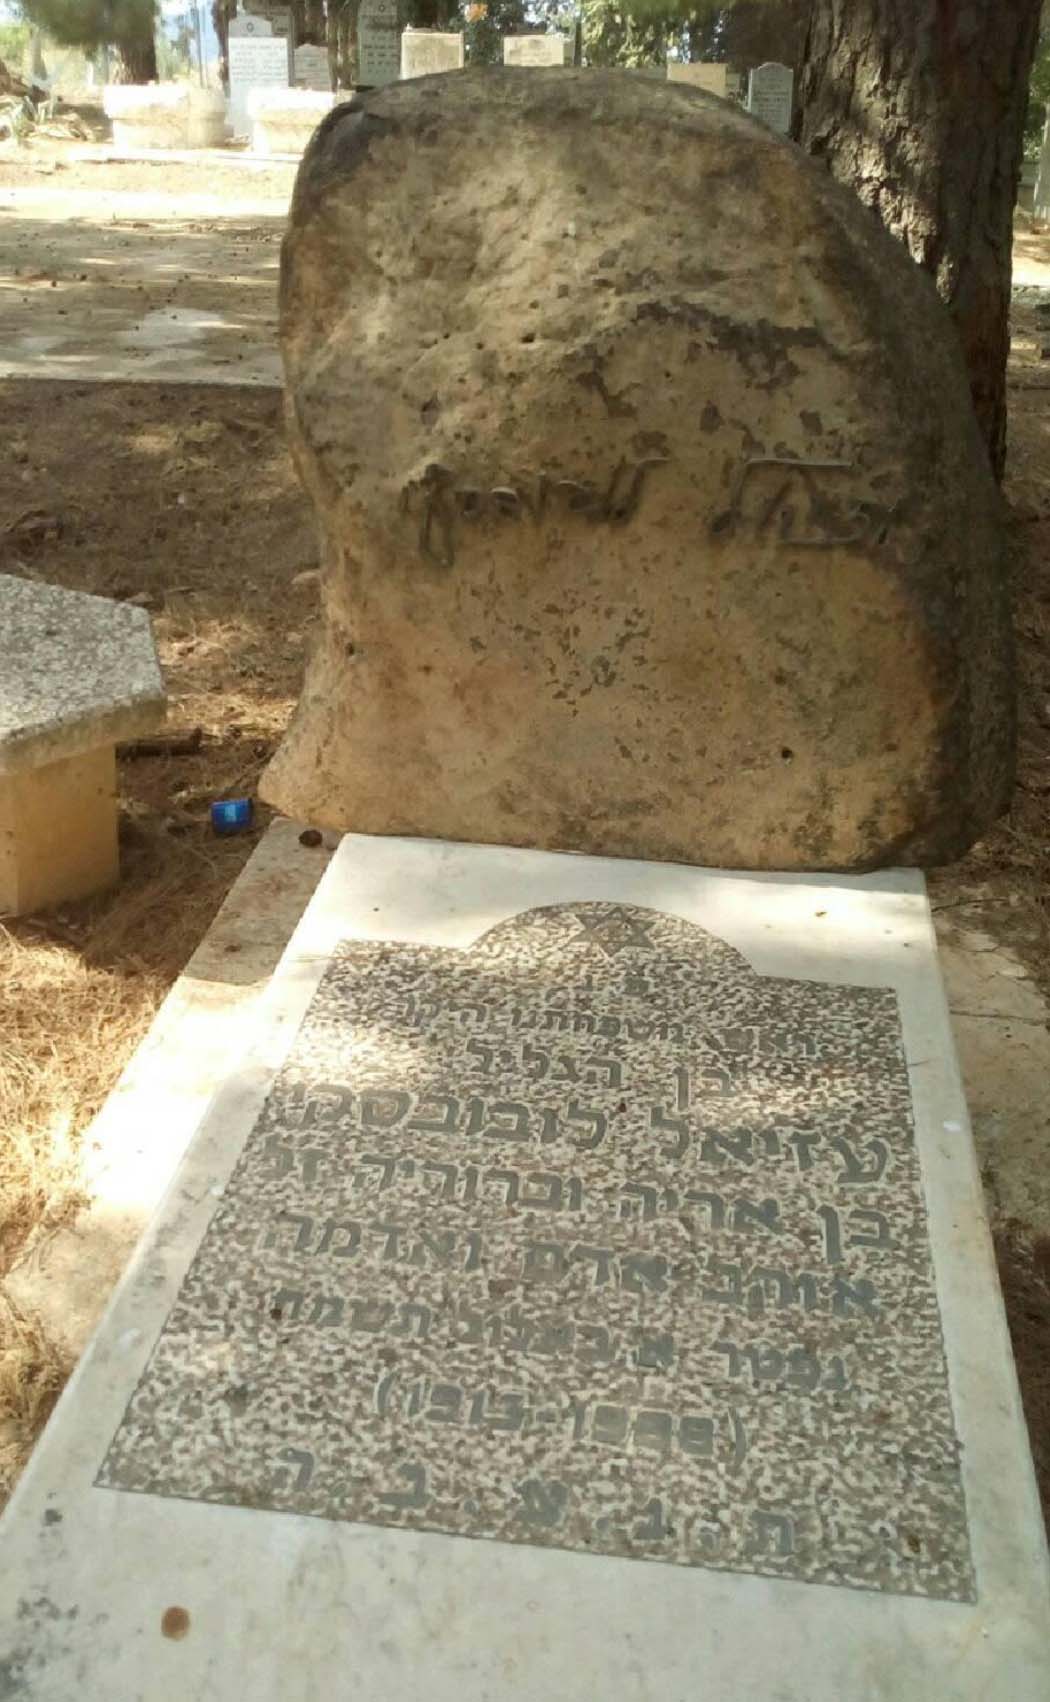 פ.נ.
ראש משפחתנו היקר
בן הגליל
עזיאל לובובסקי
בן אריה וברוריה ז"ל
אוהב אדם ואדמה
נפטר א' באלול תשמח
(1913-1988)
ת.נ.צ.ב.ה